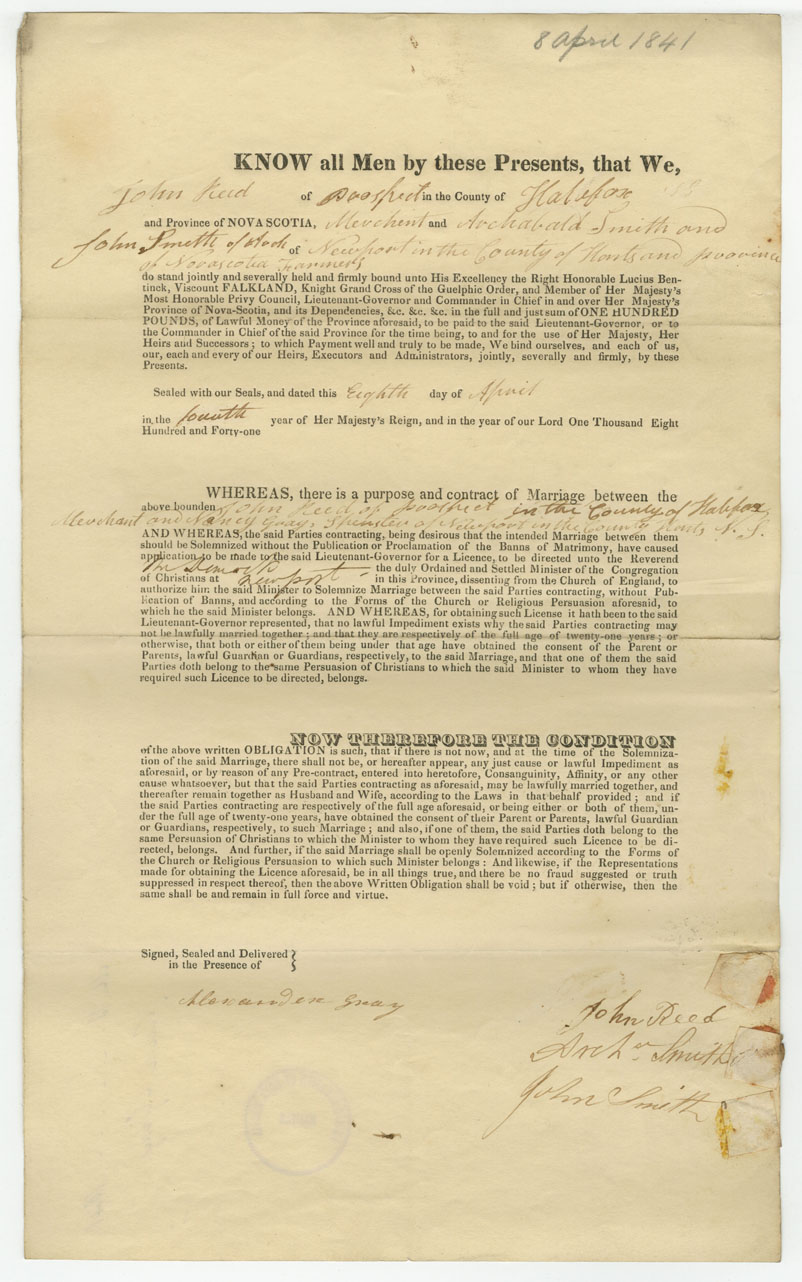 8 April 1841
KNOW all Men by these Presents, that We,
John Reed of Prospect in the County of Halifax
and Province of NOVA SCOTIA, Merchent and Archabald Smith and
John Smith of of Newport in the County of Hants and province
of Novascotia Farmers
do stand jointly and severally held and firmly bound unto His Excellency the Right Honorable Lucius Ben-
tinck, Viscount FALKLAND, Knight Grand Cross of the Guelphic Order, and Member of Her Majesty's
Most Honorable Privy Council, Lieutenant-Governor and Commander in Chief in and over Her Majesty's
Province of Nova-Scotia, and its Dependencies, &c. &c. &c. in the full and just sum of ONE HUNDRED
POUNDS, of Lawful Money of the Province aforesaid, to be paid to the said Lieutenant-Governor, or to
the Commander in Chief of the said Province for the time being, to and for the use of Her Majesty, Her
Heirs and Successors ; to which Payment well and truly to be made, We bind ourselves, and each of us,
our, each and every of our Heirs, Executors and Administrators, jointly, severally and firmly, by these
Presents.
Sealed with our Seals, and dated this Eighth day of April
in the fourth year of Her Majesty's Reign, and in the year of our Lord One Thousand Eight
Hundred and Forty-one
WHEREAS, there is a purpose and contract of Marriage between the
above bounden John Reed of Prospect in the County of Halifax
Merchant and Nancy Gray, Spinster of Newport in the County Hants N. S.
AND WHEREAS, the said Parties contracting, being desirous that the intended Marriage between them
should be Solemnized without the Publication or Proclamation of the Banns of Matrimony, have caused
application to be made to the said Lieutenant-Governor for a Licence, to be directed unto the Reverend
the duly Ordained and Settled Minister of the Congregation
of Christians at Newport in this Province, dissenting from the Church of England, to
authorize him the said Minister to Solemnize Marriage between the said Parties contracting, without Pub-
lication of Banns, and according to the Forms of the Church or Religious Persuasion aforesaid, to
which he the said Minister belongs. AND WHEREAS, for obtaining such License it hath been to the said
Lieutenant-Governor represented, that no lawful Impediment exists why the said Parties contracting may
not be lawfully married together ; and that they are respectively of the full age of twenty-one years ; or
otherwise, that both or either of them being under that age have obtained the consent of the Parent or
Parents, lawful Guardian or Guardians, respectively, to the said Marriage, and that one of them the said
Parties doth belong to the same Persuasion of Christians to which the said Minister to whom they have
required such Licence to be directed, belongs.
NOW THEREFORE THE CONDITION
of the above written OBLIGATION is such, that if there is not now, and at the time of the Solemniza-
tion of the said Marriage, there shall not be, or hereafter appear, any just cause or lawful Impediment as
aforesaid, or by reason of any Pre-contract, entered into heretofore, Consanguinity, Affinity, or any other
cause whatsoever, but that the said Parties contracting as aforesaid, may be lawfully married together, and
thereafter remain together as Husband and Wife, according to the Laws in that behalf provided ; and if
the said Parties contracting are respectively of the full age aforesaid, or being either or both of them, un-
der the full age of twenty-one years, have obtained the consent of their Parent or Parents, lawful Guardian
or Guardians, respectively, to such Marriage ; and also, if one of them, the said Parties doth belong to the
same Persuasion of Christians to which the Minister to whom they have required such Licence to be di-
rected, belongs. And further, if the said Marriage shall be openly Solemnized according to the Forms of
the Church or Religious Persuasion to which such Minister belongs : And likewise, if the Representations
made for obtaining the Licence aforesaid, be in all things true, and there be no fraud suggested or truth
suppressed in respect thereof, then the above Written Obligation shall be void ; but if otherwise, then the
same shall be and remain in full force and virtue.
Signed, Sealed and Delivered
in the Presence of
Alexander Gray
John Reed
Archd Smith
John Smith